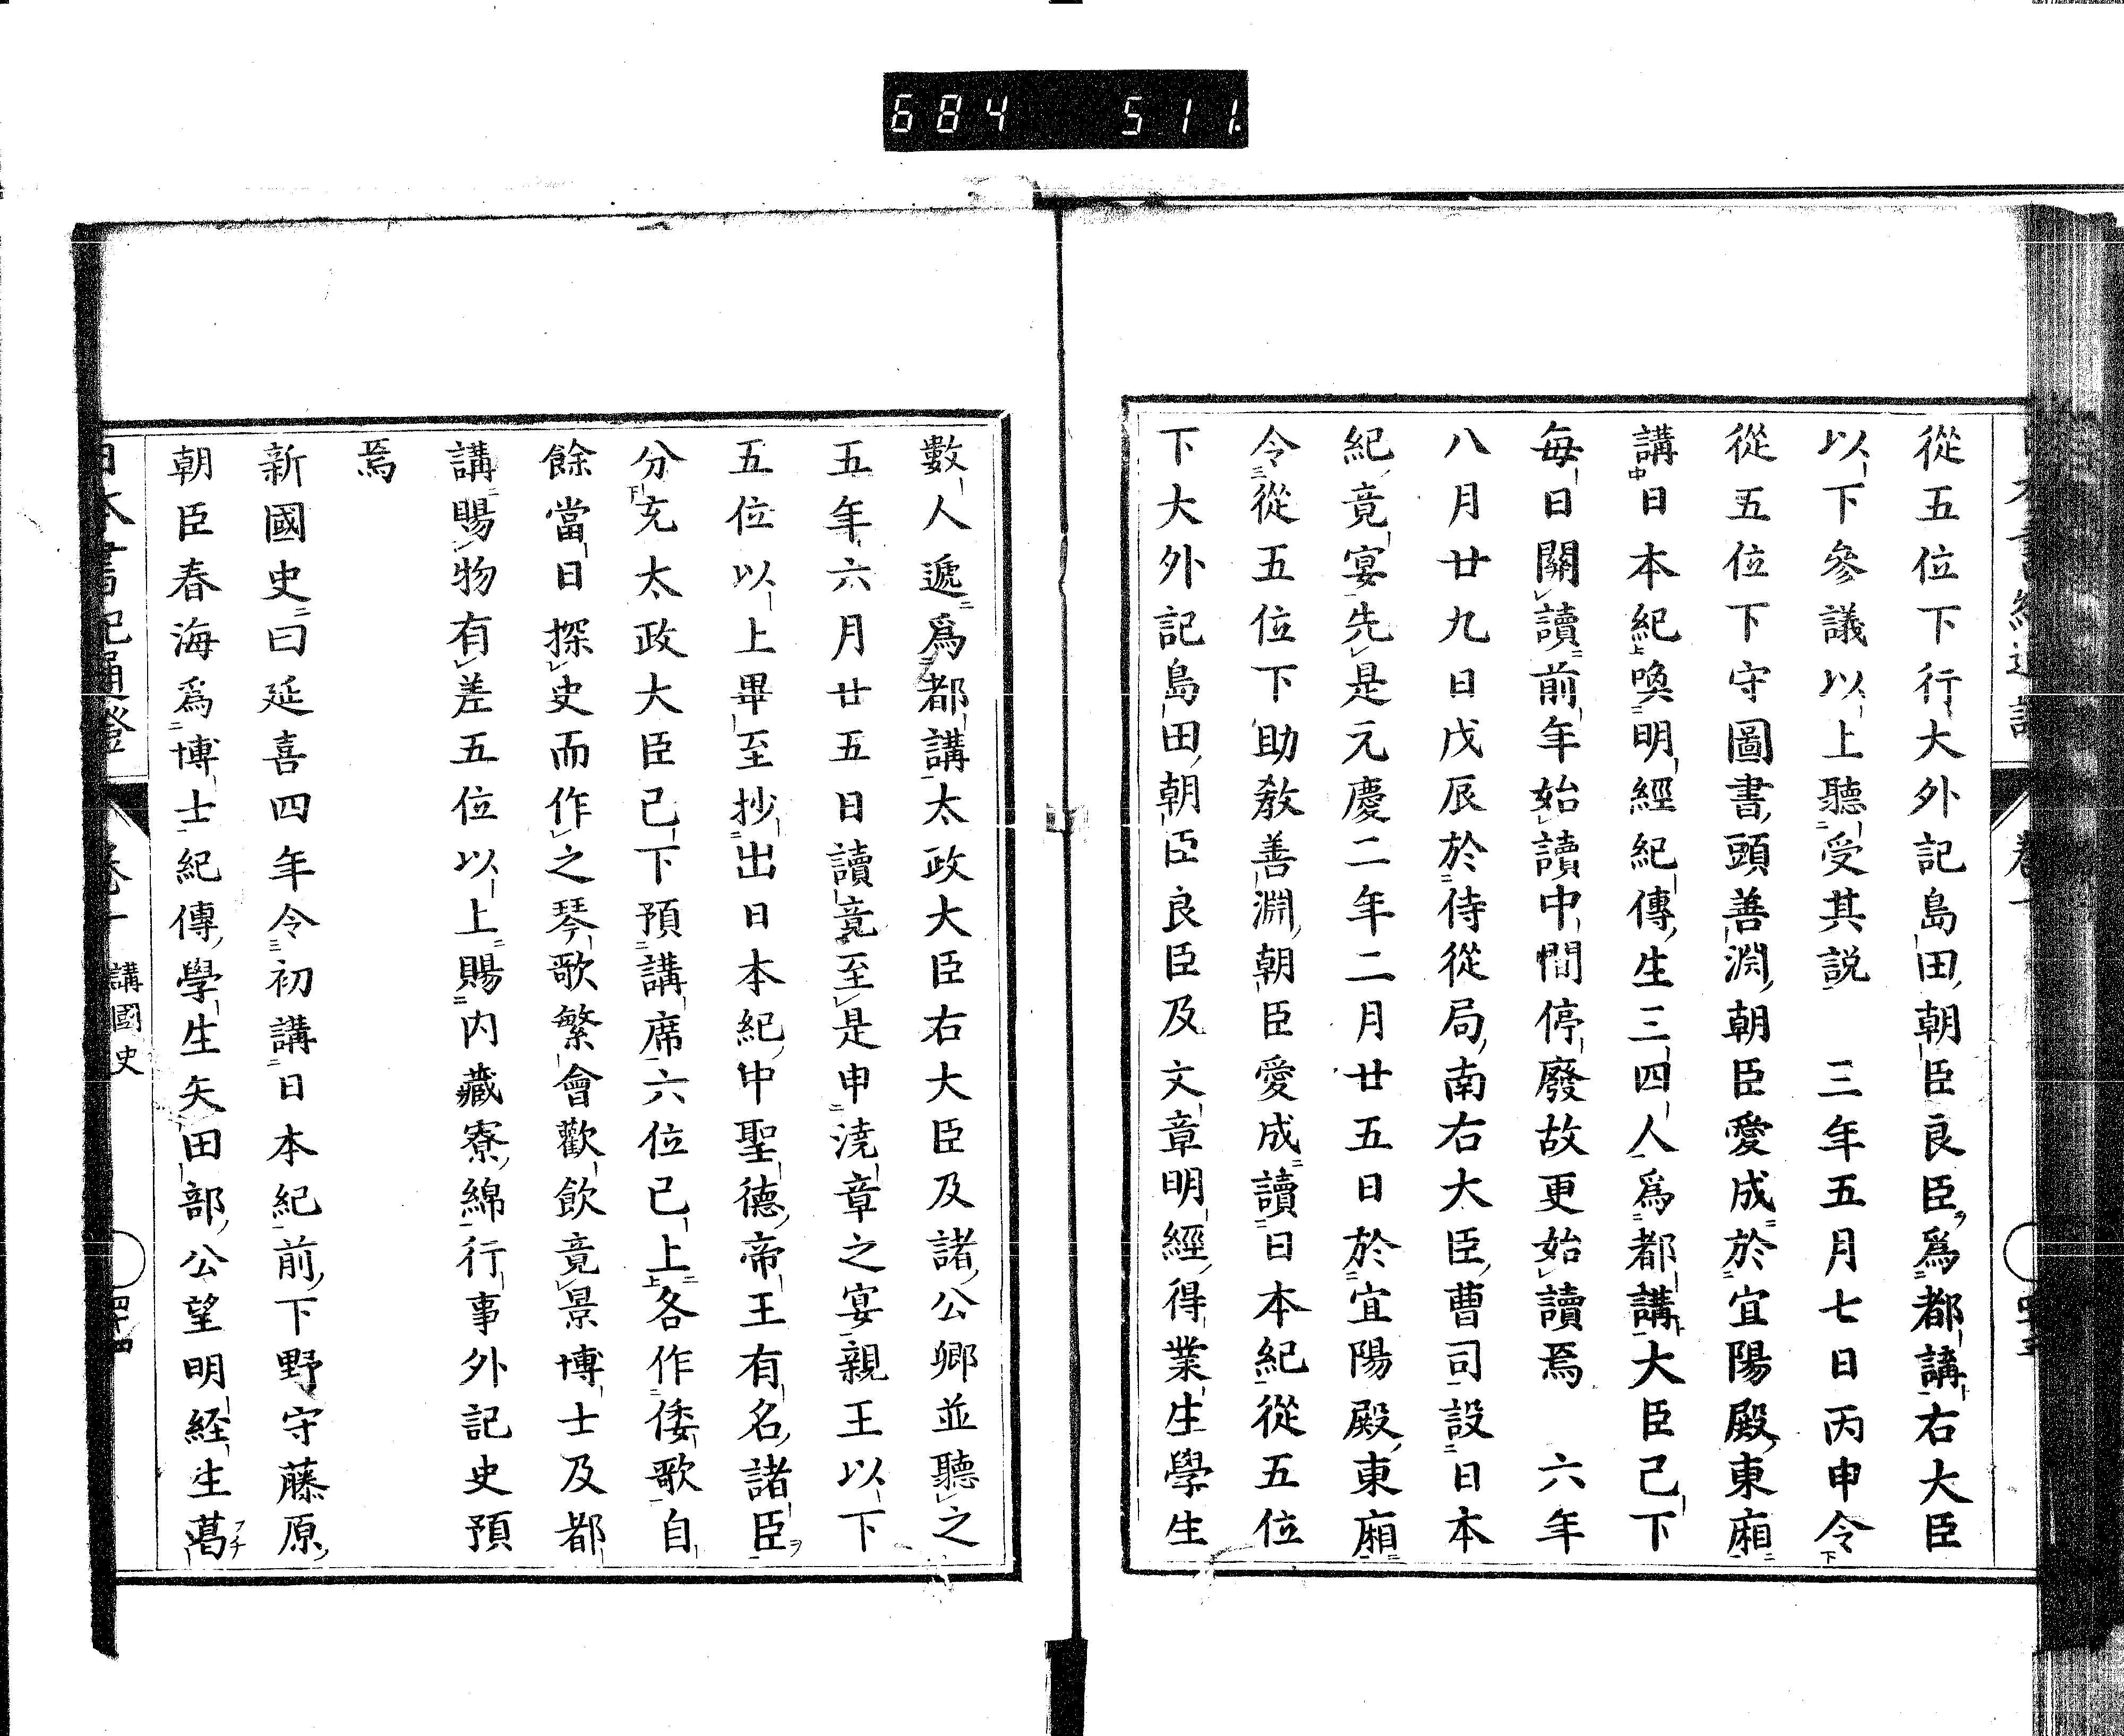 684 511.
從五位下行大外記島田朝臣良臣爲都講右大臣
以下參議以上聽受其説　三年五月七日丙申令
從五位下守圖書頭善淵朝臣愛成於宜陽殿東廂
講日本紀喚明經紀傳生三四人爲都講大臣已下
毎日闗讀前年始讀中間停廢故更始讀焉　六年
八月廿九日戊辰於侍從局南右大臣曹司設日本
紀竟宴先是元慶二年二月廿五日於宜陽殿東廂
令從五位下助敎善淵朝臣愛成讀日本紀從五位
下大外記島田朝臣良臣及文章明經得業生學生
數人遞爲都講太政大臣右大臣及諸公卿並聽之
五年六月廿五日讀竟至是申澆章之宴親王以下
五位以上畢至抄出日本紀中聖德帝王有名諸臣
分充太政大臣已下預講席六位已上各作倭歌自
餘當日探史而作之琴歌繁會歡飮竟景博士及都
講賜物有差五位以上賜内藏寮綿行事外記史預
焉
新國史曰延喜四年令初講日本紀前下野守藤原
朝臣春海爲博士紀傳學生矢田部公望明経生葛
日本書紀通證　講國史　四十四